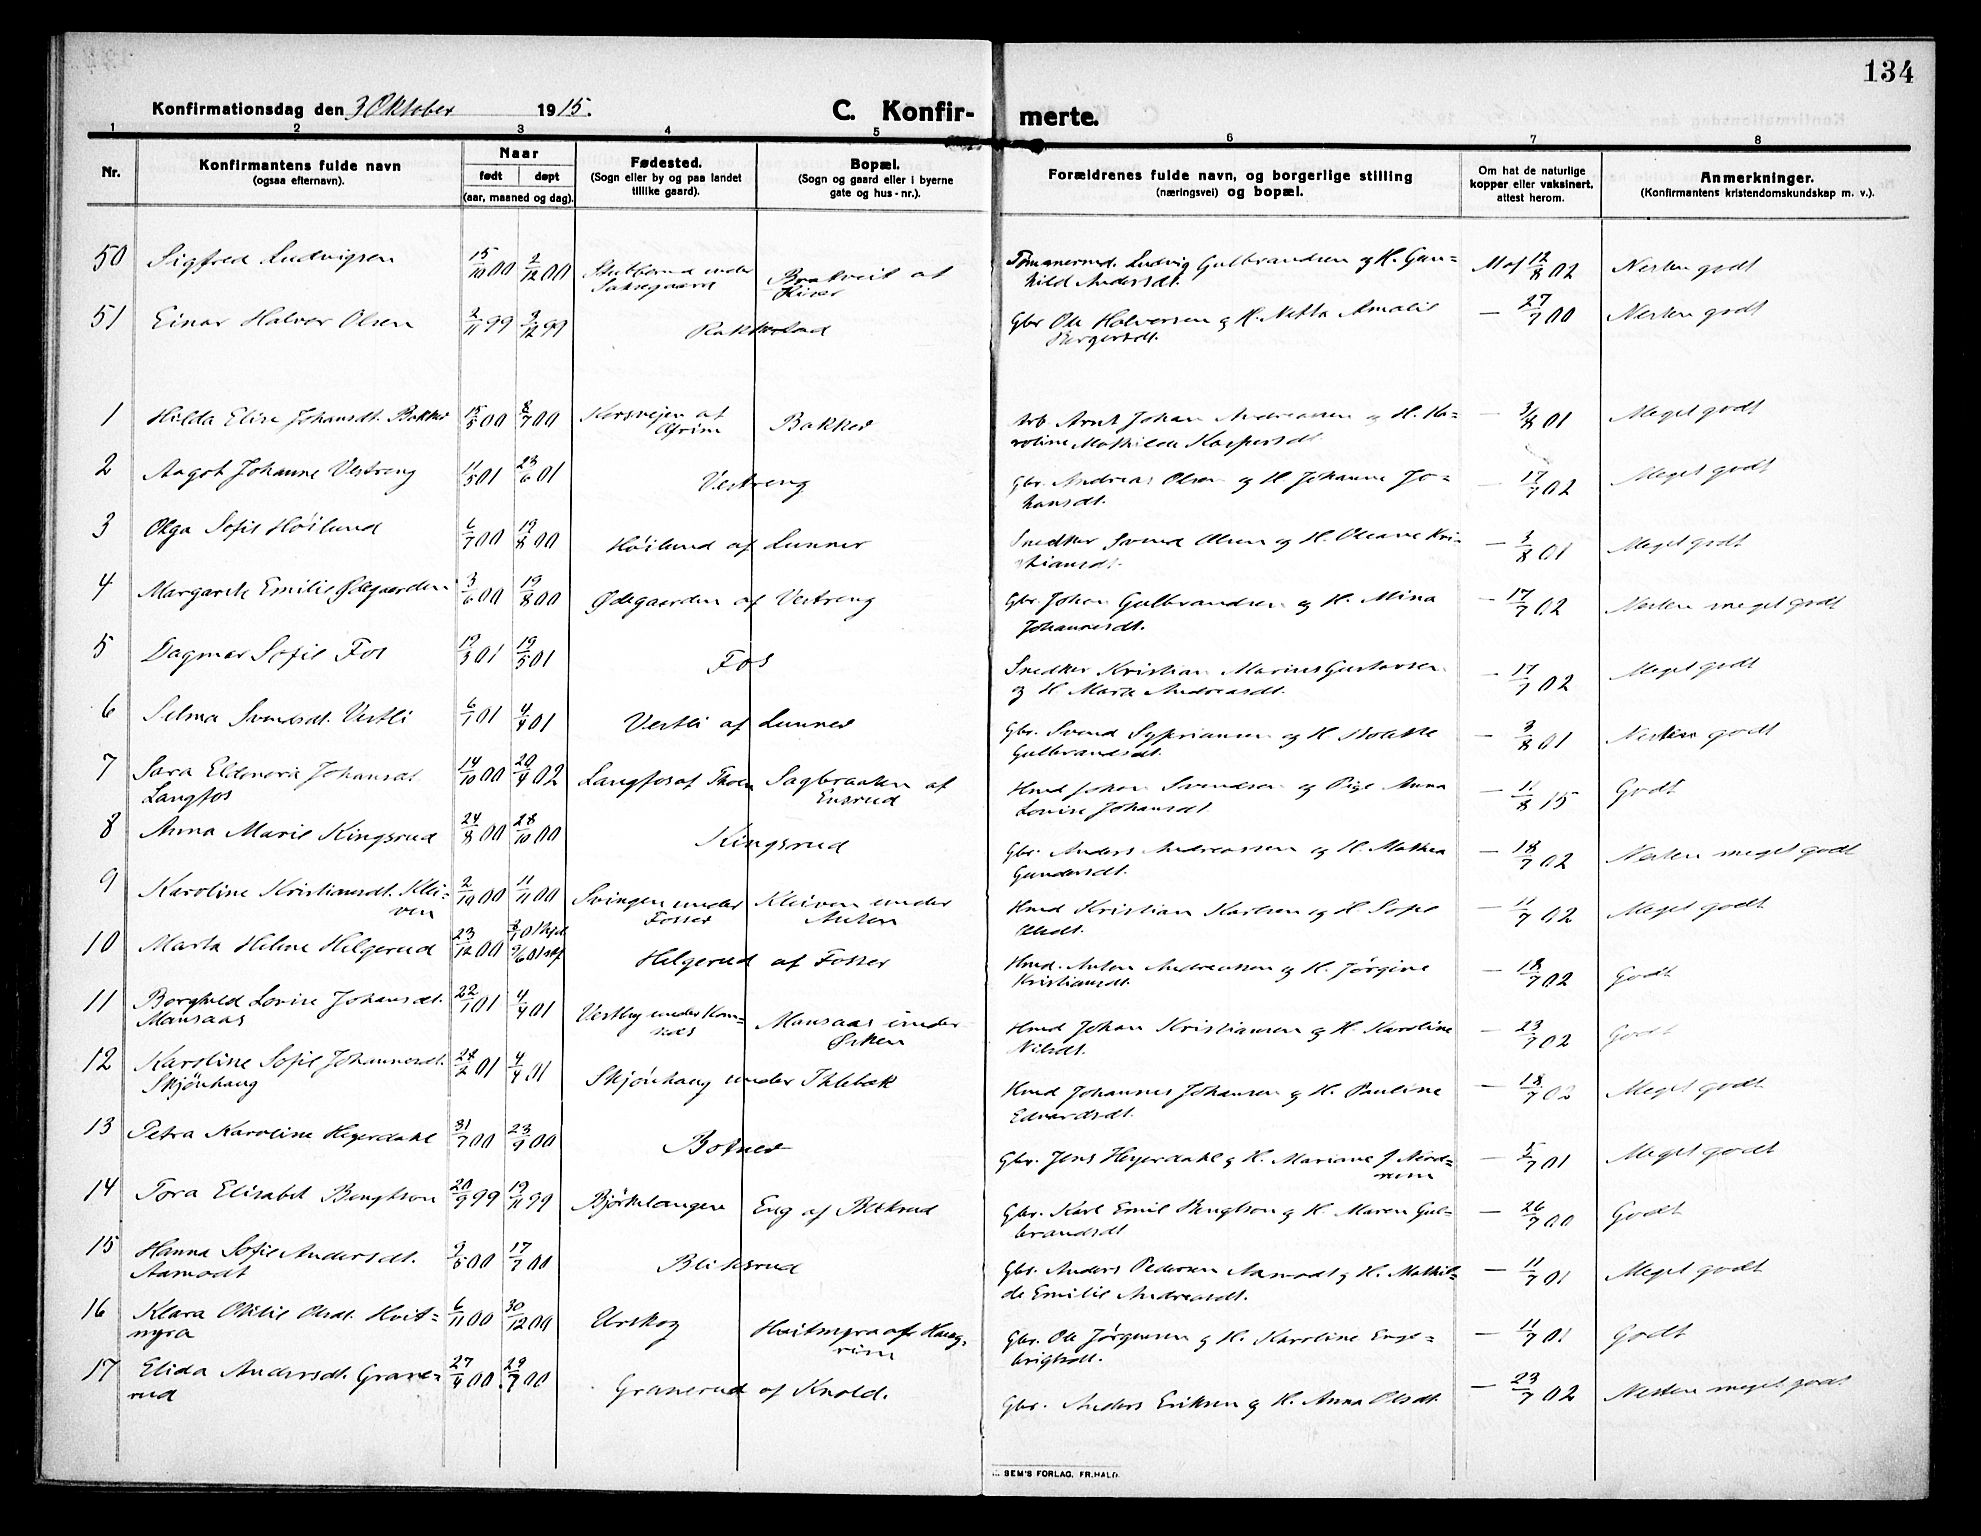 134
Konfirmationsdag den 3 Oktober 1915. C. Konfir- merte.
1 2 3 4 5 6 7 8
Nr. Konfirmantens fulde navn (ogsaa efternavn). Naar født døpt (aar, maaned og dag). Fødested. (Sogn eller by og paa landet tillike gaard). Bopæl. (Sogn og gaard eller i byerne gate og hus-nr.). Forældrenes fulde navn, og borgerlige stilling (næringsvei) og bopæl. Om hat de naturlige kopper eller vaksinert, attest herom. Anmerkninger. (Konfirmantens kristendomskundskap m. v.).
50 Sigfred Ludvigsen 15/10 00 2/12 00 under Ludvig Gulbrandsen og H. Gun-
hild Andersdt. 12/8 02 Nesten godt
51 Einar Halvor Olsen 2/11 99 3/12 99 Gbr Ole Halvorsen og H. Netta Amalie
Bergersdt. — 27/7 00 Nesten godt
1 Hilda Elise Johansdt. Bakker 15/5 00 8/7 00 Korsvejen af Bakker Arb. Arnt Johan Andreassen og H. Ka-
roline Mathilde Kaspersdt. — 3/8 01 Meget godt
2 Aagot Johanne Vestreng 11/5 01 23/6 01 Vestreng Gbr. Andreas Olsen og H Johanne Jo-
hansdt. — 17/7 02 Meget godt
3 Olga Sofie Höilund 6/7 00 19/8 00 Höilund af Lunner Snedker Svend Olsen og H. Oleane Kri-
stiansdt. — 3/8 01 Meget godt
4 Margarete Emilie Ødegaarden 3/6 00 19/8 00 Ødegaarden af Vestreng Gbr. Johan Gulbrandsen og H. Mina
Johannesdt. — 17/7 02 Nesten meget godt
5 Dagmar Sofie Fos 19/3 01 19/5 01 Fos Snedker Kristian Marius Gustavsen
og H Marte Andreasdt. — 17/7 02 Meget godt
6 Selma Svendsdt. Vestli 6/1 01 4/4 01 Vestli af Lunner Gbr. Svend Sypriansen og H
Gulbrandsdt. — 3/8 01 Nesten godt
7 Sara Eleonora Johansdt 14/10 00 20/4 02 Langfos af Thoen Sagbraaten af Hmd Johan Svendsen og Pige Anna
Langfos Ensrud Lovise Johansdt — 11/8 15 Godt
8 Anna Marie Kingsrud 24/8 00 28/10 00 Kingsrud Gbr. Anders Andreassen og H. Mathea
Gundersdt. — 18/7 02 Nesten meget godt
9 Karoline Kristiansdt. Klei- 2/10 00 11/11 00 Svingen under Kleiven under Hmd Kristian Karlsen og H Sofie
ven Fosser Olsdt. — 11/7 02 Meget godt
10 Marta Helene Helgerud 23/12 00 9/6 01 Helgerud af Fosser Hmd. Anton Andreassen og H. Jørgine
Kristiansdt. — 18/7 02 Godt
11 Borghild Lovise Johansdt. 22/1 01 4/4 01 Vestby under Mansaas under Hmd Johan Kristiansen og H. Karoline
Mansaas Nilsdt. — 23/7 02 Godt
12 Karoline Sofie Johannesdt. 28/2 01 4/4 01 Skjönhaug under Ihlebæk Hmd Johannes Johansen og H. Pauline
Skjönhaug Edvardsdt. — 18/7 02 Meget godt
13 Petra Karoline Heyerdahl 31/7 00 23/9 00 Botner Gbr. Jens Heyerdahl og H. Mariane f Nord-
— 5/7 01 Meget godt
14 Tora Elisabet Bengtson 20/9 99 19/11 99 Bjørkelangen Eng af Gbr. Karl Emil Bengtson og H. Maren Gul-
brandsdt — 26/7 00 Godt
15 Hanna Sofie Andersdt. 9/5 00 17/7 01 Bliksrud Gbr. Anders Pedersen Aamodt og H. Mathil-
Aamodt de Emilie Andreasdt. — 11/7 01 Meget godt
16 Klara Otilie Olsdt. Hvit- 6/11 00 30/12 00 Urskog Hvitmyra af Gbr. Ole Jørgensen og H. Karoline Enge-
myra brigtsdt. — 11/7 01 Godt
17 Elida Andersdt. Grane- 27/4 00 29/7 00 Granerud af Knold. Gbr. Anders Eriksen og H. Anna Olsdt. — 23/7 02 Nesten meget godt
rud
SEM'S FORLAG, FR.HALD.